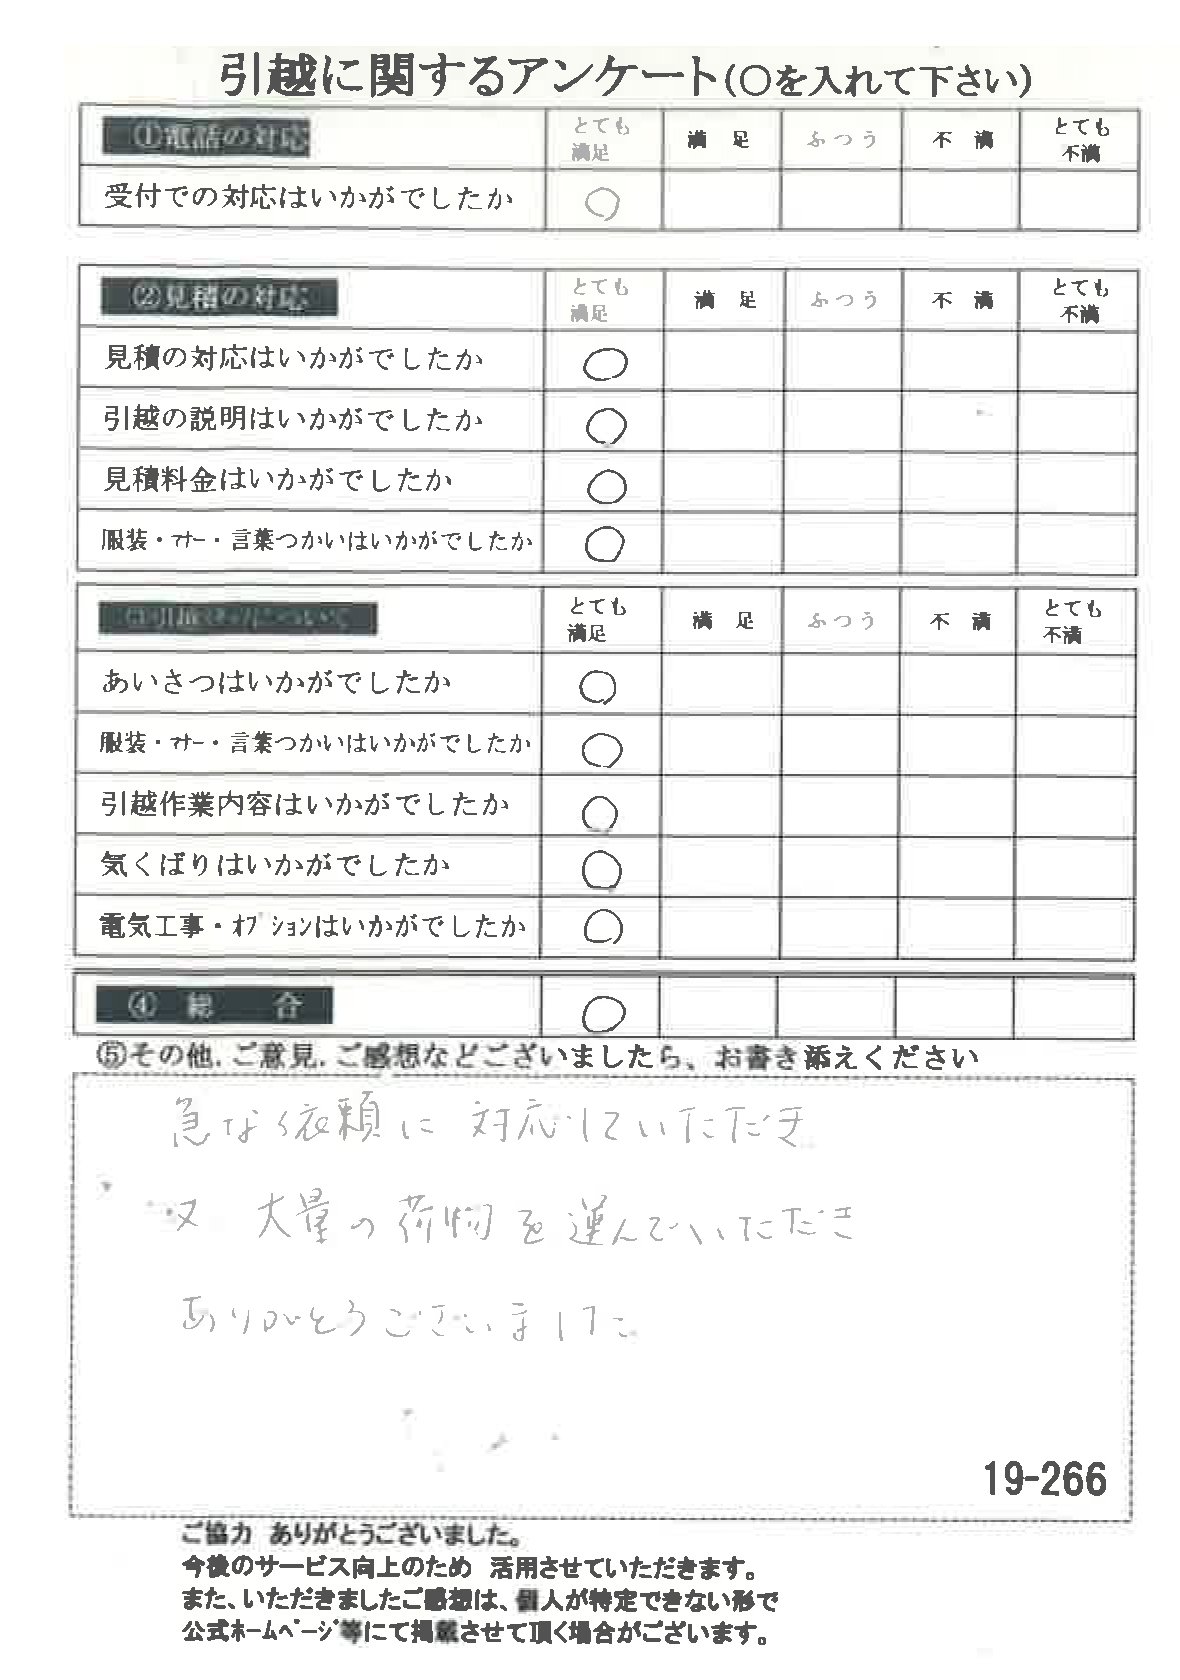 引越に関するアンケート(○を入れて下さい)
①電話の対応 とても満足 満 足 ふつう 不 満 とても不満
受付での対応はいかがでしたか ○
②見積の対応 とても満足 満 足 ふつう 不 満 とても不満
見積の対応はいかがでしたか ○
引越の説明はいかがでしたか ○
見積料金はいかがでしたか ○
服装・マナー・言葉つかいはいかがでしたか ○
とても満足 満 足 ふつう 不 満 とても不満
あいさつはいかがでしたか ○
服装・マナー・言葉つかいはいかがでしたか ○
引越作業内容はいかがでしたか ○
気くばりはいかがでしたか ○
電気工事・オプションはいかがでしたか ○
④ 総 合 ○
⑤その他、ご意見、ご感想などございましたら、お書き添えください
急な依頼に 対応していただき
又 大量の荷物を運んでいただき
ありがとうございました
19-266
ご協力 ありがとうございました。
今後のサービス向上のため 活用させていただきます。
また、いただきましたご感想は、個人が特定できない形で
公式ホームページ等にて掲載させて頂く場合がございます。